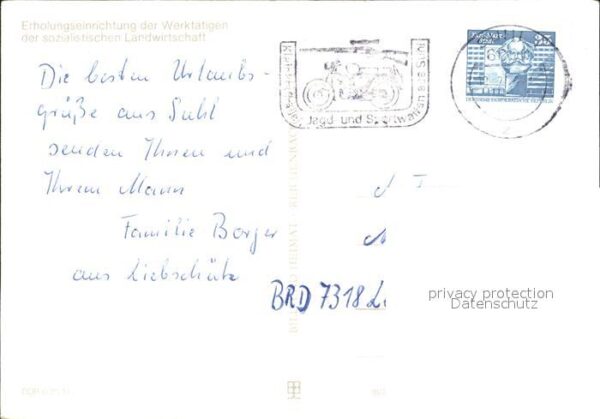 Erholungseinrichtung der Werktätigen
der sozialistischen Landwirtschaft
Die besten Urlaubs-
grüße aus Suhl
senden Ihnen und
Ihrem Mann
Familie Borger
aus Liebschütz
Jagd- und Sportwaffen aus Suhl
DEUTSCHE DEMOKRATISCHE REPUBLIK
BRD 7318 L.
privacy protection
Datenschutz